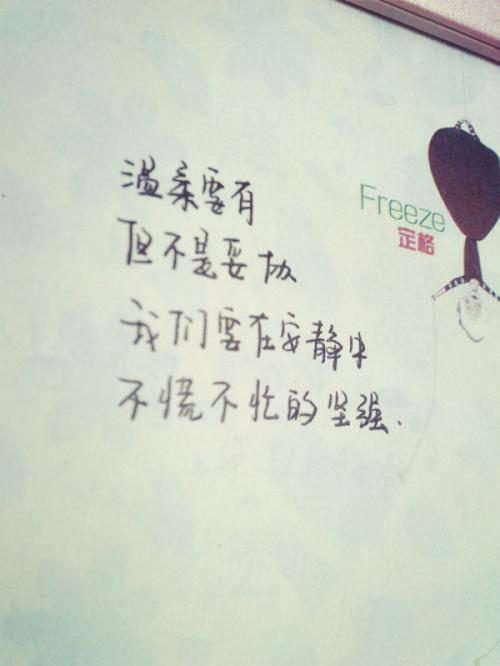 温柔要有
但不是妥协
我们要在安静中
不慌不忙的坚强.
Freeze
定格